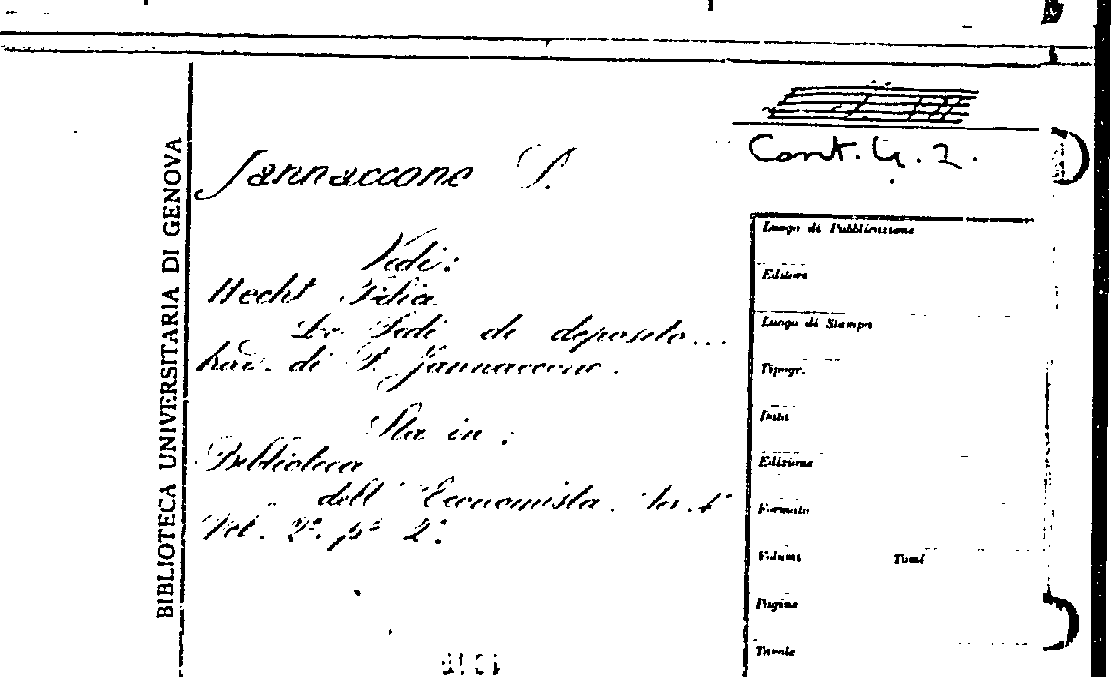 BIBLIOTECA UNIVERSITARIA DI GENOVA
Cont. G. 2.
Jannaccone P.
Vedi:
Hecht
di deposito...
trad. di P. Jannaccone.
Sta in:
Biblioteca
dell'Economista. Ser. 4ª
Vol. 2º pº 2º
Luogo di Pubblicazione
Editore
Luogo di Stampa
Tipogr.
Data
Edizione
Formato
Volumi Tomi
Pagine
Tavole